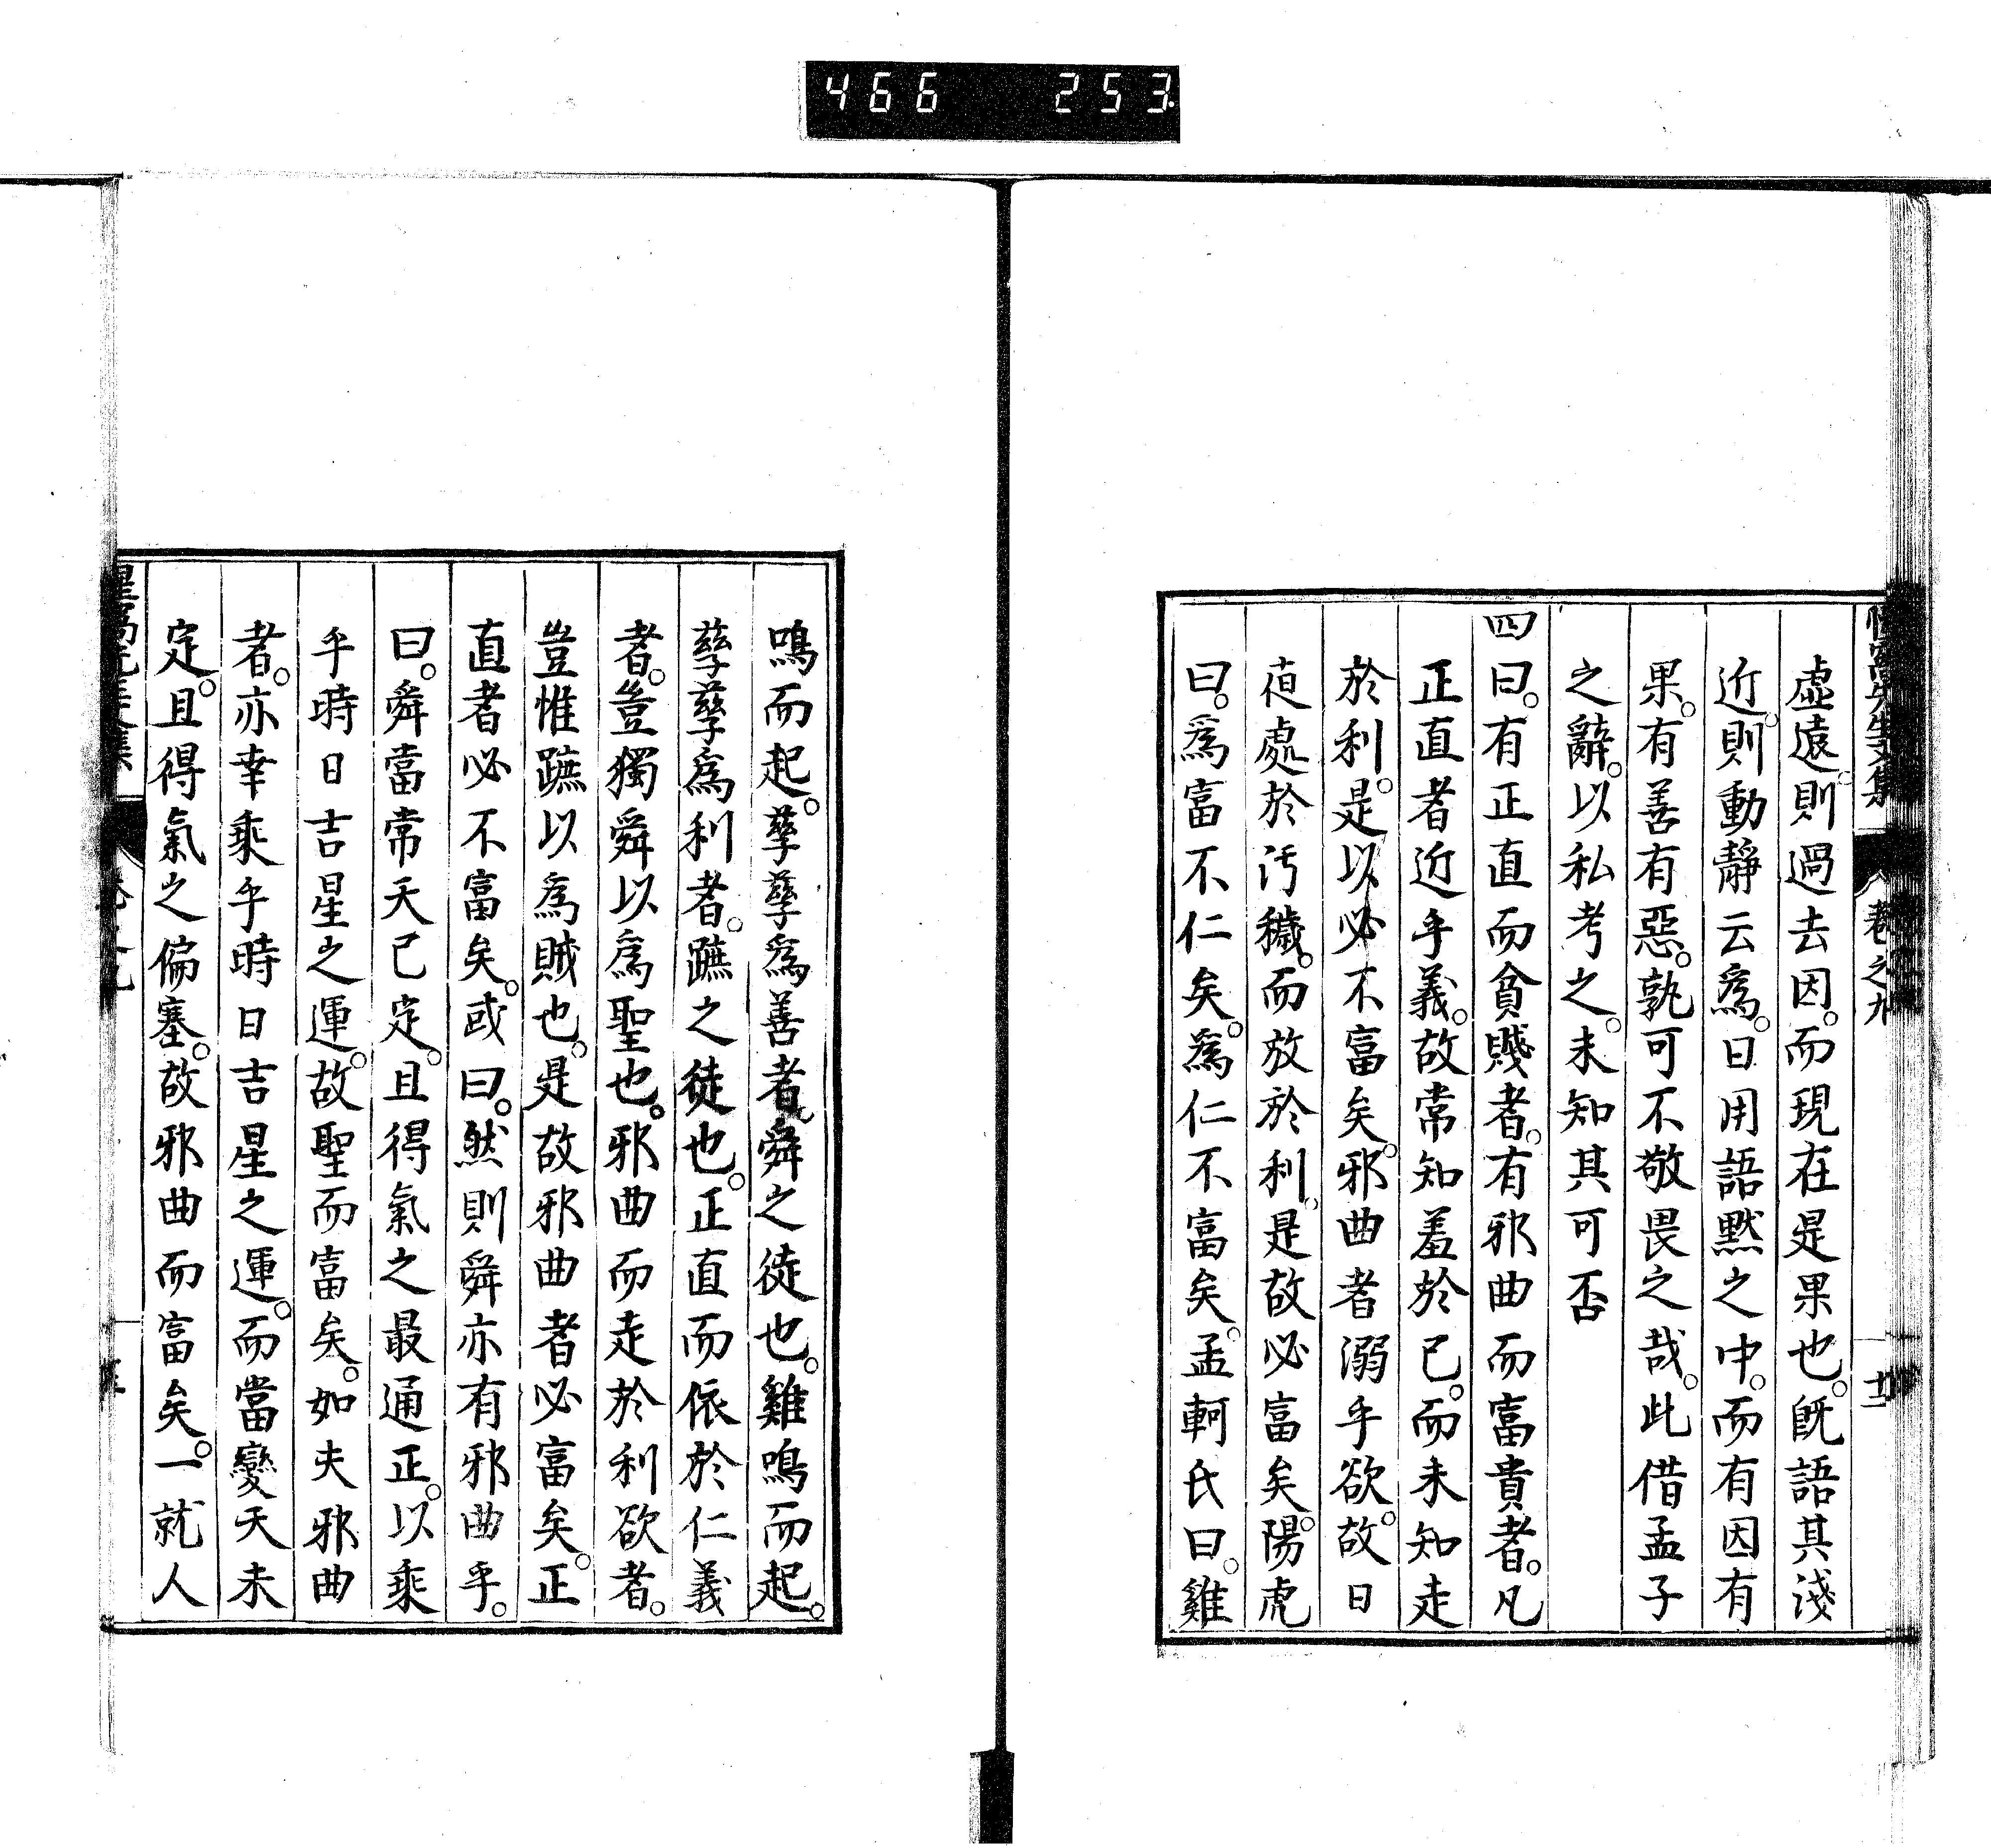 466 253
先生文集 卷之九 十二
虛遠。則過去因。而現在是果也。旣語其淺
近。則動靜云爲。日用語默之中。而有因有
果。有善有惡。孰可不敬畏之哉。此借孟子
之辭。以私考之。未知其可否
四曰。有正直而貧賤者。有邪曲而富貴者。凡
正直者近乎義。故常知羞於己。而未知走
於利。是以必不富矣。邪曲者溺乎欲。故日
夜處於汚穢。而放於利。是故必富矣。陽虎
曰。爲富不仁矣。爲仁不富矣。孟軻氏曰。雞
鳴而起。孳孳爲善者。舜之徒也。雞鳴而起。
孳孳爲利者。蹠之徒也。正直而依於仁義
者。豈獨舜以爲聖也。邪曲而走於利欲者。
豈惟蹠以爲賊也。是故邪曲者必富矣。正
直者必不富矣。或曰。然則舜亦有邪曲乎。
曰。舜當常天已定。且得氣之最通正。以乘
乎時日吉星之運。故聖而富矣。如夫邪曲
者。亦幸乘乎時日吉星之運。而當變天未
定。且得氣之偏塞。故邪曲而富矣。一就人